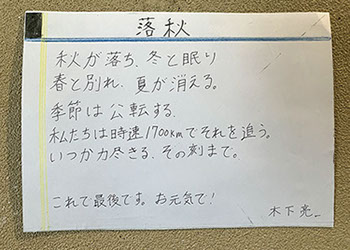 落秋
秋が落ち、冬と眠り
春と別れ、夏が消える。
季節は公転する、
私たちは時速1700kmでそれを追う。
いつか力尽きる、その刻まで。
これで最後です。お元気で!
木下亮_